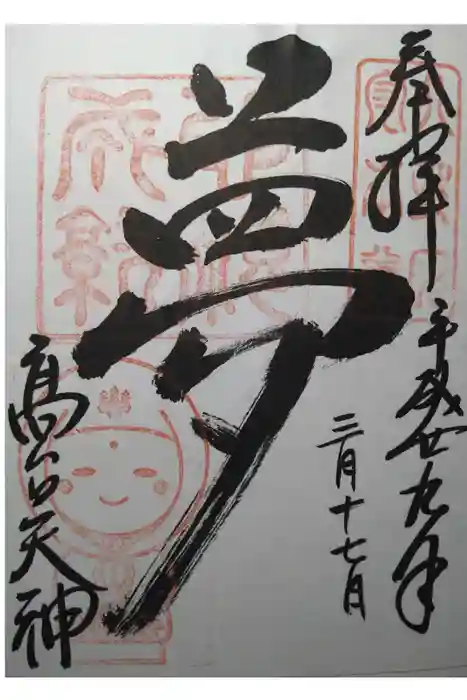 奉拝
平成廿九年
三月十七日
夢
高台天神